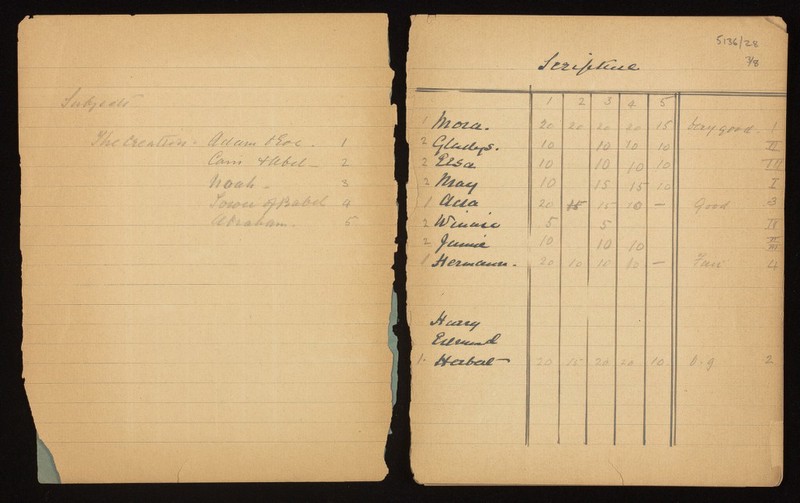 Subjects
The Creation - Adam & Eve. 1
Cain & Abel - 2
Noah - 3
Tower of Babel 4
Abraham. 5
5136/28
7/8
Scripture
1 2 3 4 5
1 Mora. 20 20 20 20 15 Very good. 1
2 Gladys. 10 10 10 10 II
2 Elsa 10 10 10 10 III
2 May 10 15 15 10 I
1 20 15 15 10 - Good 3
2 Winnie 5 5
2 10 10 10
1 Hermann. 20 10 10 10 - Fair 4
Harry
Edmund
1. 20 15 20 20 10 V. g 2